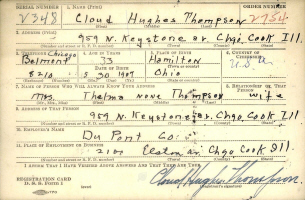 SERIAL NUMBER 1. NAME (Print) ORDER NUMBER
V348 Cloud Hughes Thompson 2754
2. ADDRESS (Print)
959 N. Keystone av Chgo Cook Ill.
3. TELEPHONE 4. AGE IN YEARS 5. PLACE OF BIRTH 6. COUNTRY OF CITIZENSHIP
Chicago
Belmont 33 Hamilton U.S.A
8210 30 1909 Ohio
7. NAME OF PERSON WHO WILL ALWAYS KNOW YOUR ADDRESS 8. RELATIONSHIP OF THAT PERSON
Mrs Thelma none Thompson wife
9. ADDRESS OF THAT PERSON
959 N. Keystone av Chgo Cook Ill
10. EMPLOYER'S NAME
Du Pont Co.
11. PLACE OF EMPLOYMENT OR BUSINESS
2100 Elston av Chgo Cook Ill.
I AFFIRM THAT I HAVE VERIFIED ABOVE ANSWERS AND THAT THEY ARE TRUE.
REGISTRATION CARD
D. S. S. Form 1
Cloud Hughes Thompson